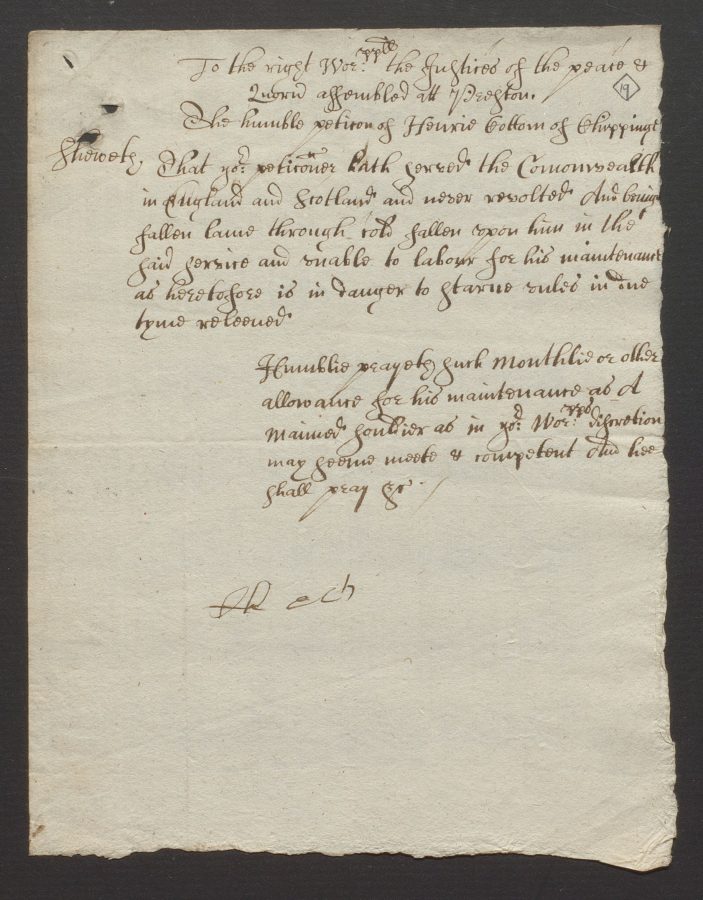 To the right Wor:pple the Justices of the peace &
19
Quorū assembled att Preston.
The humble peticon of Henrie Cottom of Chippinge
Sheweth,
That yor: peticoner hath served the Comonwealth
in England and Scotland and never revolted And being
fallen lame through cold fallen upon him in the
said service and unable to labour for his maintenance
as heretofore is in danger to starve unles in due
tyme releeved
Humblie prayeth such monthlie or other
allowance for his maintenance as A
maimed souldier as in yor: Wor:pps discretion
may seeme meete & competent And hee
shall pray &c